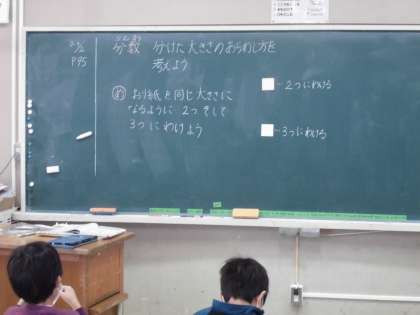 2/2
P.95
ぶんすう
分数 分けた大きさのあらわし方を
考えよう
め おり紙を同じ大きさに
なるように 2つそして
3つにわけよう
-2つにわける
-3つにわける